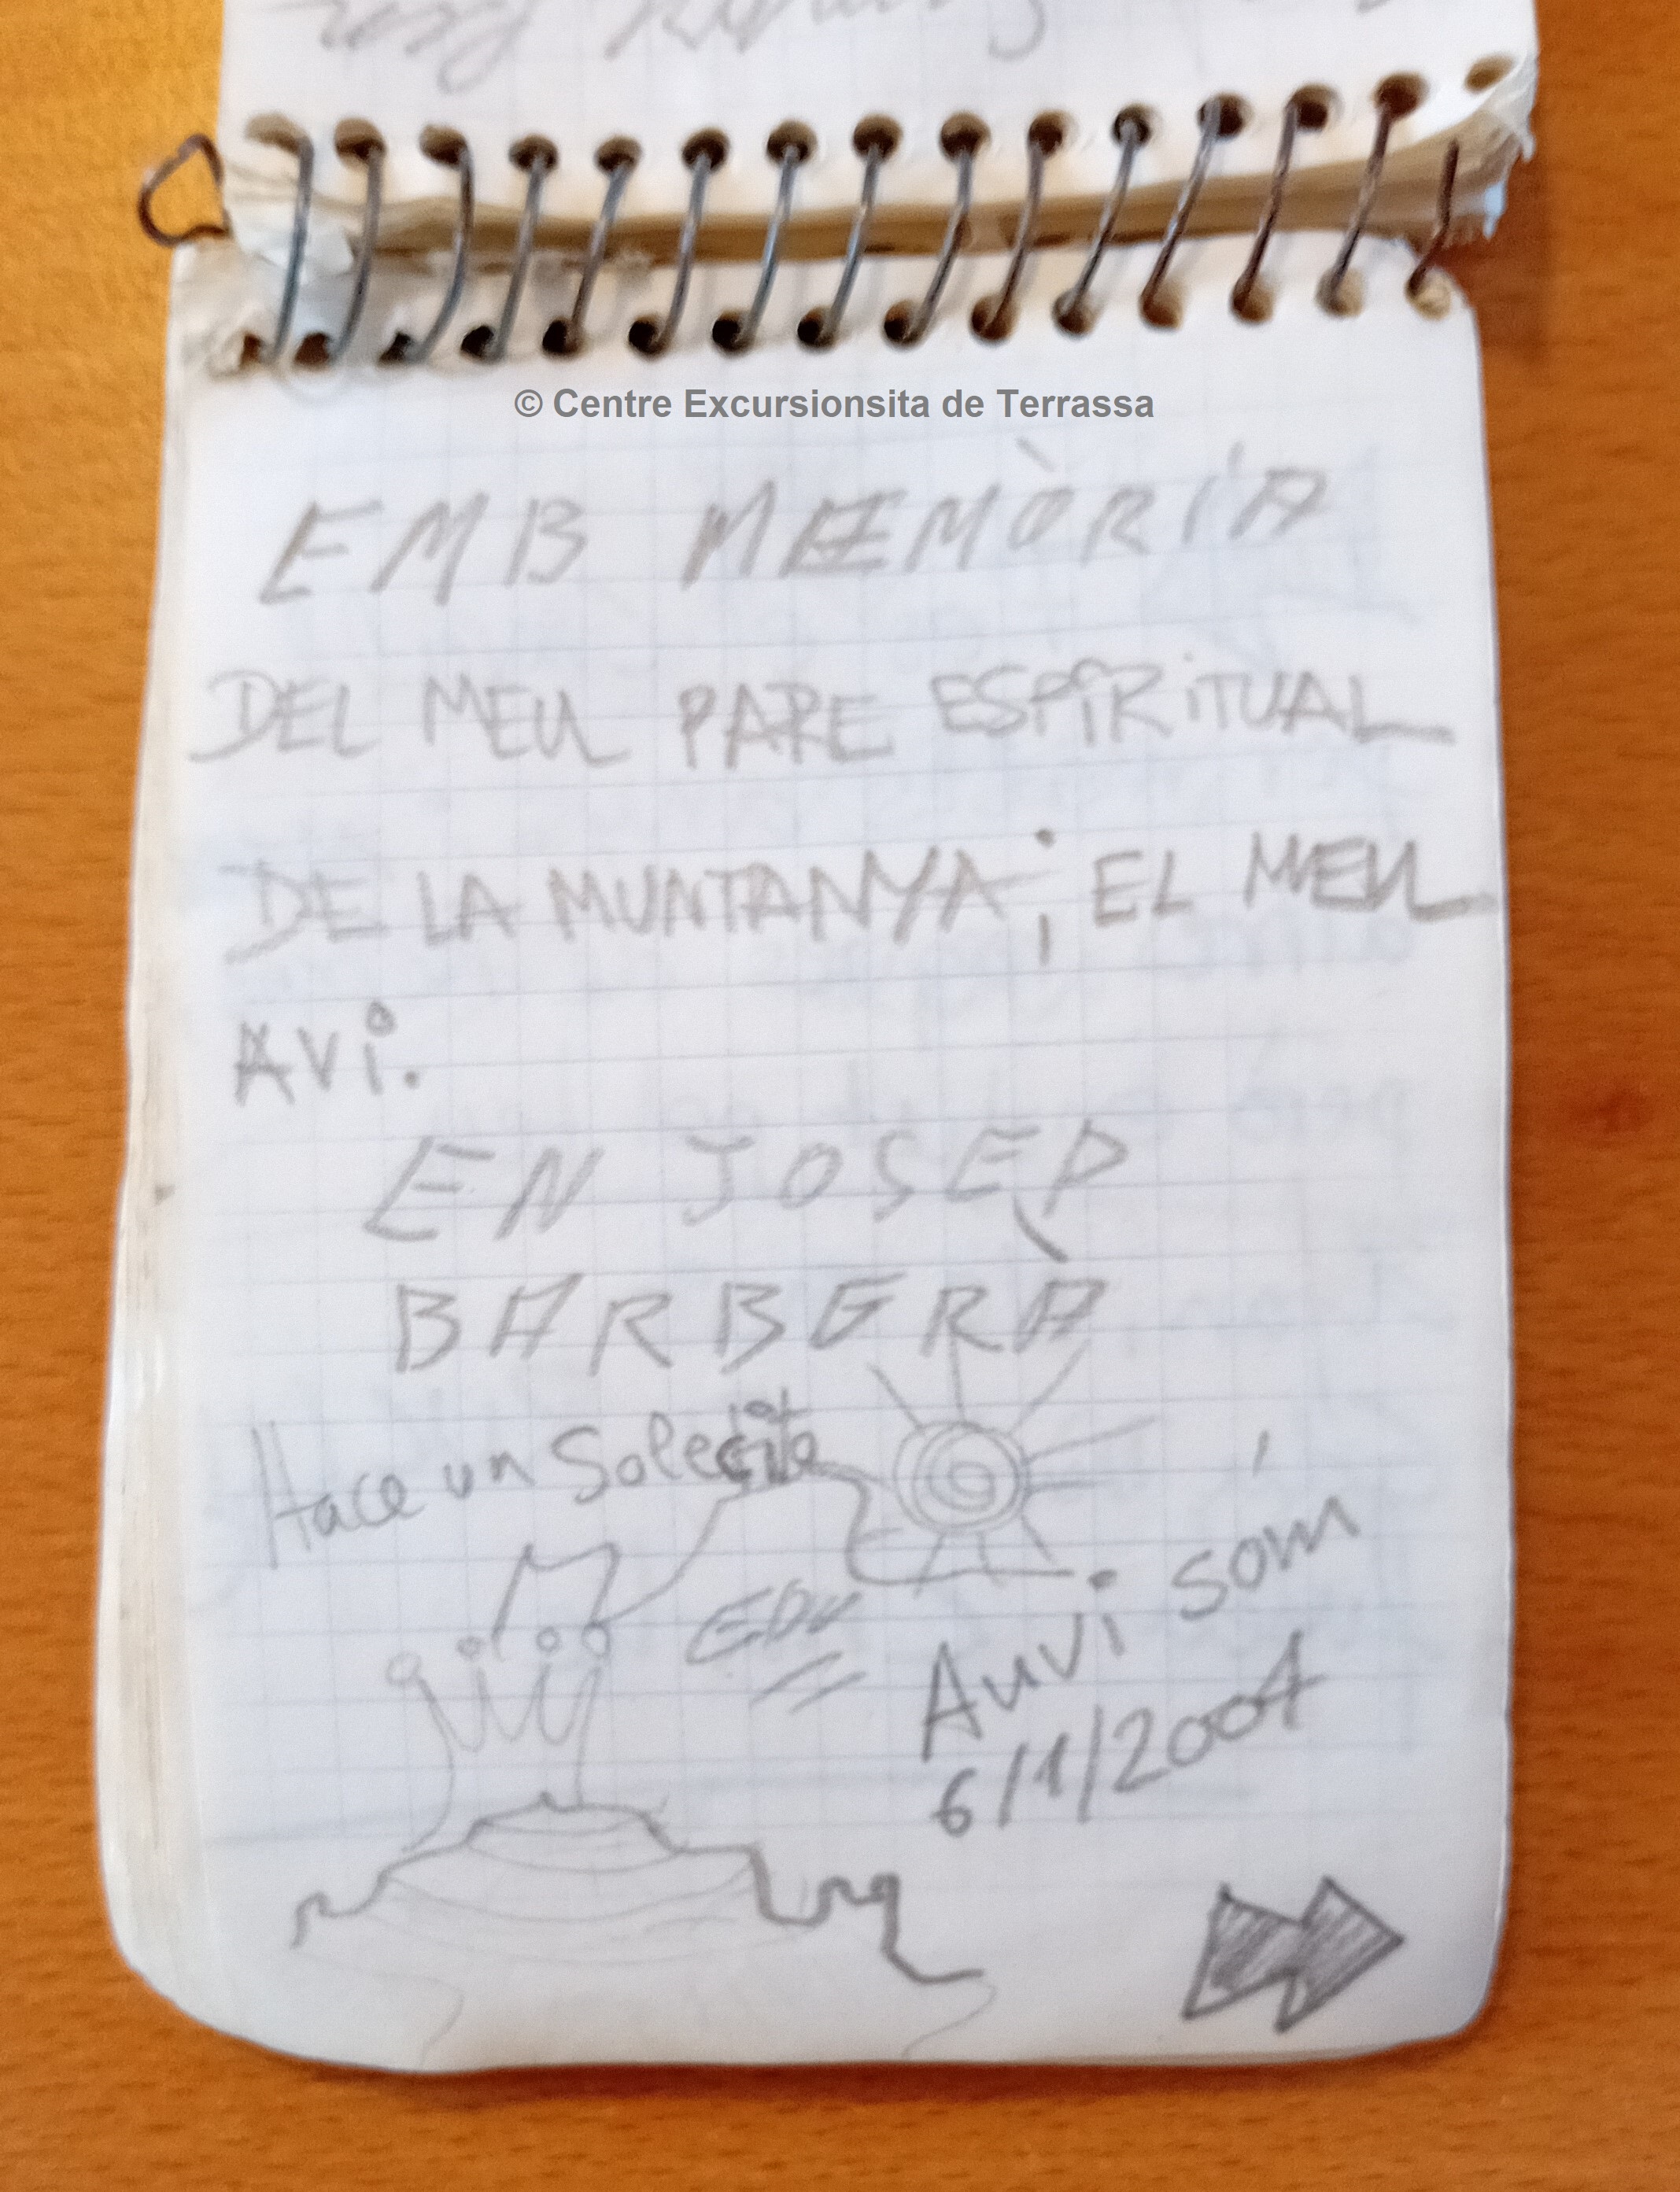 © Centre Excursionsita de Terrassa
EMB MEMÒRIA
DEL MEU PARE ESPIRITUAL
DE LA MUNTANYA; EL MEU
AVi.
EN JOSEP
BARBERÀ
Hace un Solecito
EDU
Auvi sóm
6/1/2004